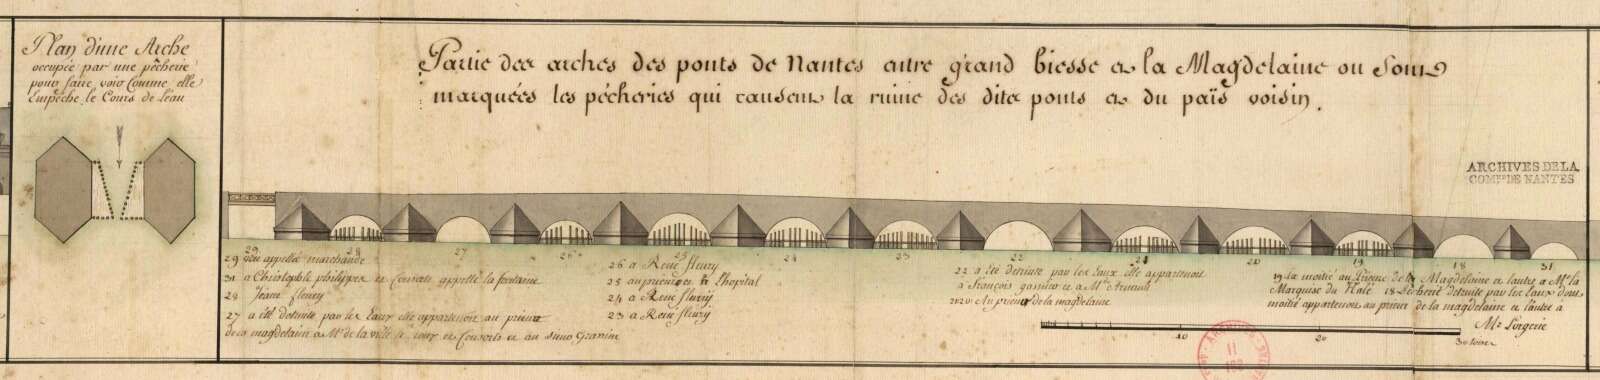 Plan d'une Arche
occupée par une pêcherie
pour faire voir Comme elle
Empêche le Cours de Leau
Partie des arches des ponts de Nantes entre grand biesse et la Magdelaine ou Sont
marquées les pécheries qui causent la ruine des dits ponts et du païs voisin.
ARCHIVES DE LA
COM.NE DE NANTES
29 28 27 26 25 24 23 22 21 20 19 18 31
29 appellée marchande
31 a Christophle philippes et Consorts appellé la fontaine
28 Jeanne fleury
27 a été detruite par les Eaux elle appartenoit au prieur
de la magdelaine a Mr de la ville et Consorts et au
26 a René fleury
25 au prieur de l'hopital
24 a René fleury
23 a René fleury
22 a été detruite par les Eaux elle appartenoit
a François et a Mr
21 20 Au prieur de la magdelaine
19 la moitié au Prieur de la Magdelaine et lautre a Me la
Marquise du 18 Pécherie detruite par les Eaux dont
moitié appartenoit au prieur de la magdelaine et lautre a
Mr Lorgerie
10 20 30 toises